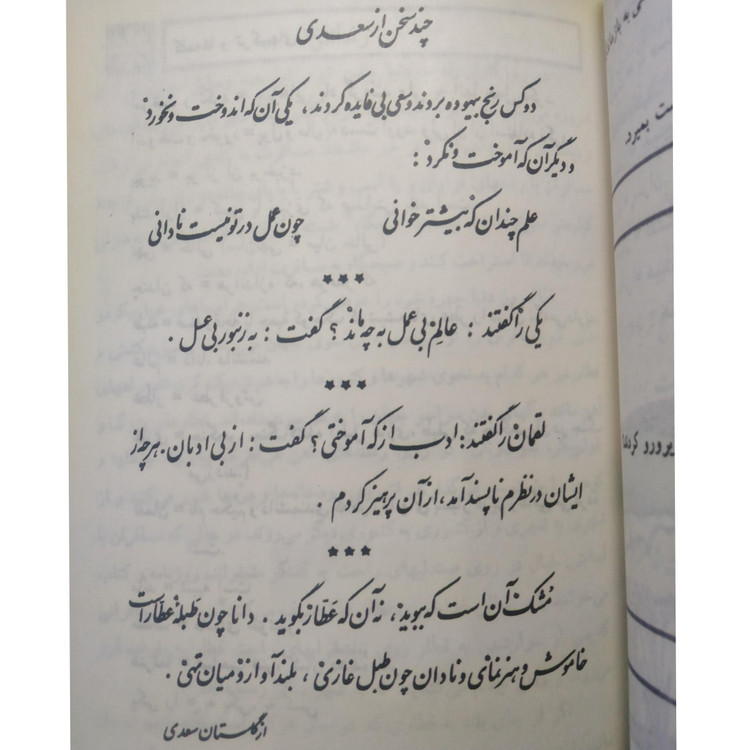 چند سخن از سعدی
دو کس رنج بیهوده بردند و سعی بی فایده کردند، یکی آن که اندوخت و نخورد
و دیگر آن که آموخت و نکرد :
علم چندان که بیشتر خوانی چون عمل در تو نیست نادانی
***
یکی را گفتند : عالِم بی عمل به چه ماند ؟ گفت : به زنبور بی عسل .
***
لقمان را گفتند : ادب از که آموختی ؟ گفت : از بی ادبان . هر چه از
ایشان در نظرم ناپسند آمد ، از آن پرهیز کردم .
***
مُشک آن است که ببوید ، نه آن که عَطّار بگوید . دانا چون طبلهٔ عطار است
خاموش و هنر نمای و نادان چون طبل غازی ، بلند آواز و میان تهی .
از گلستان سعدی
ست بعیرد
یر و رو کردند